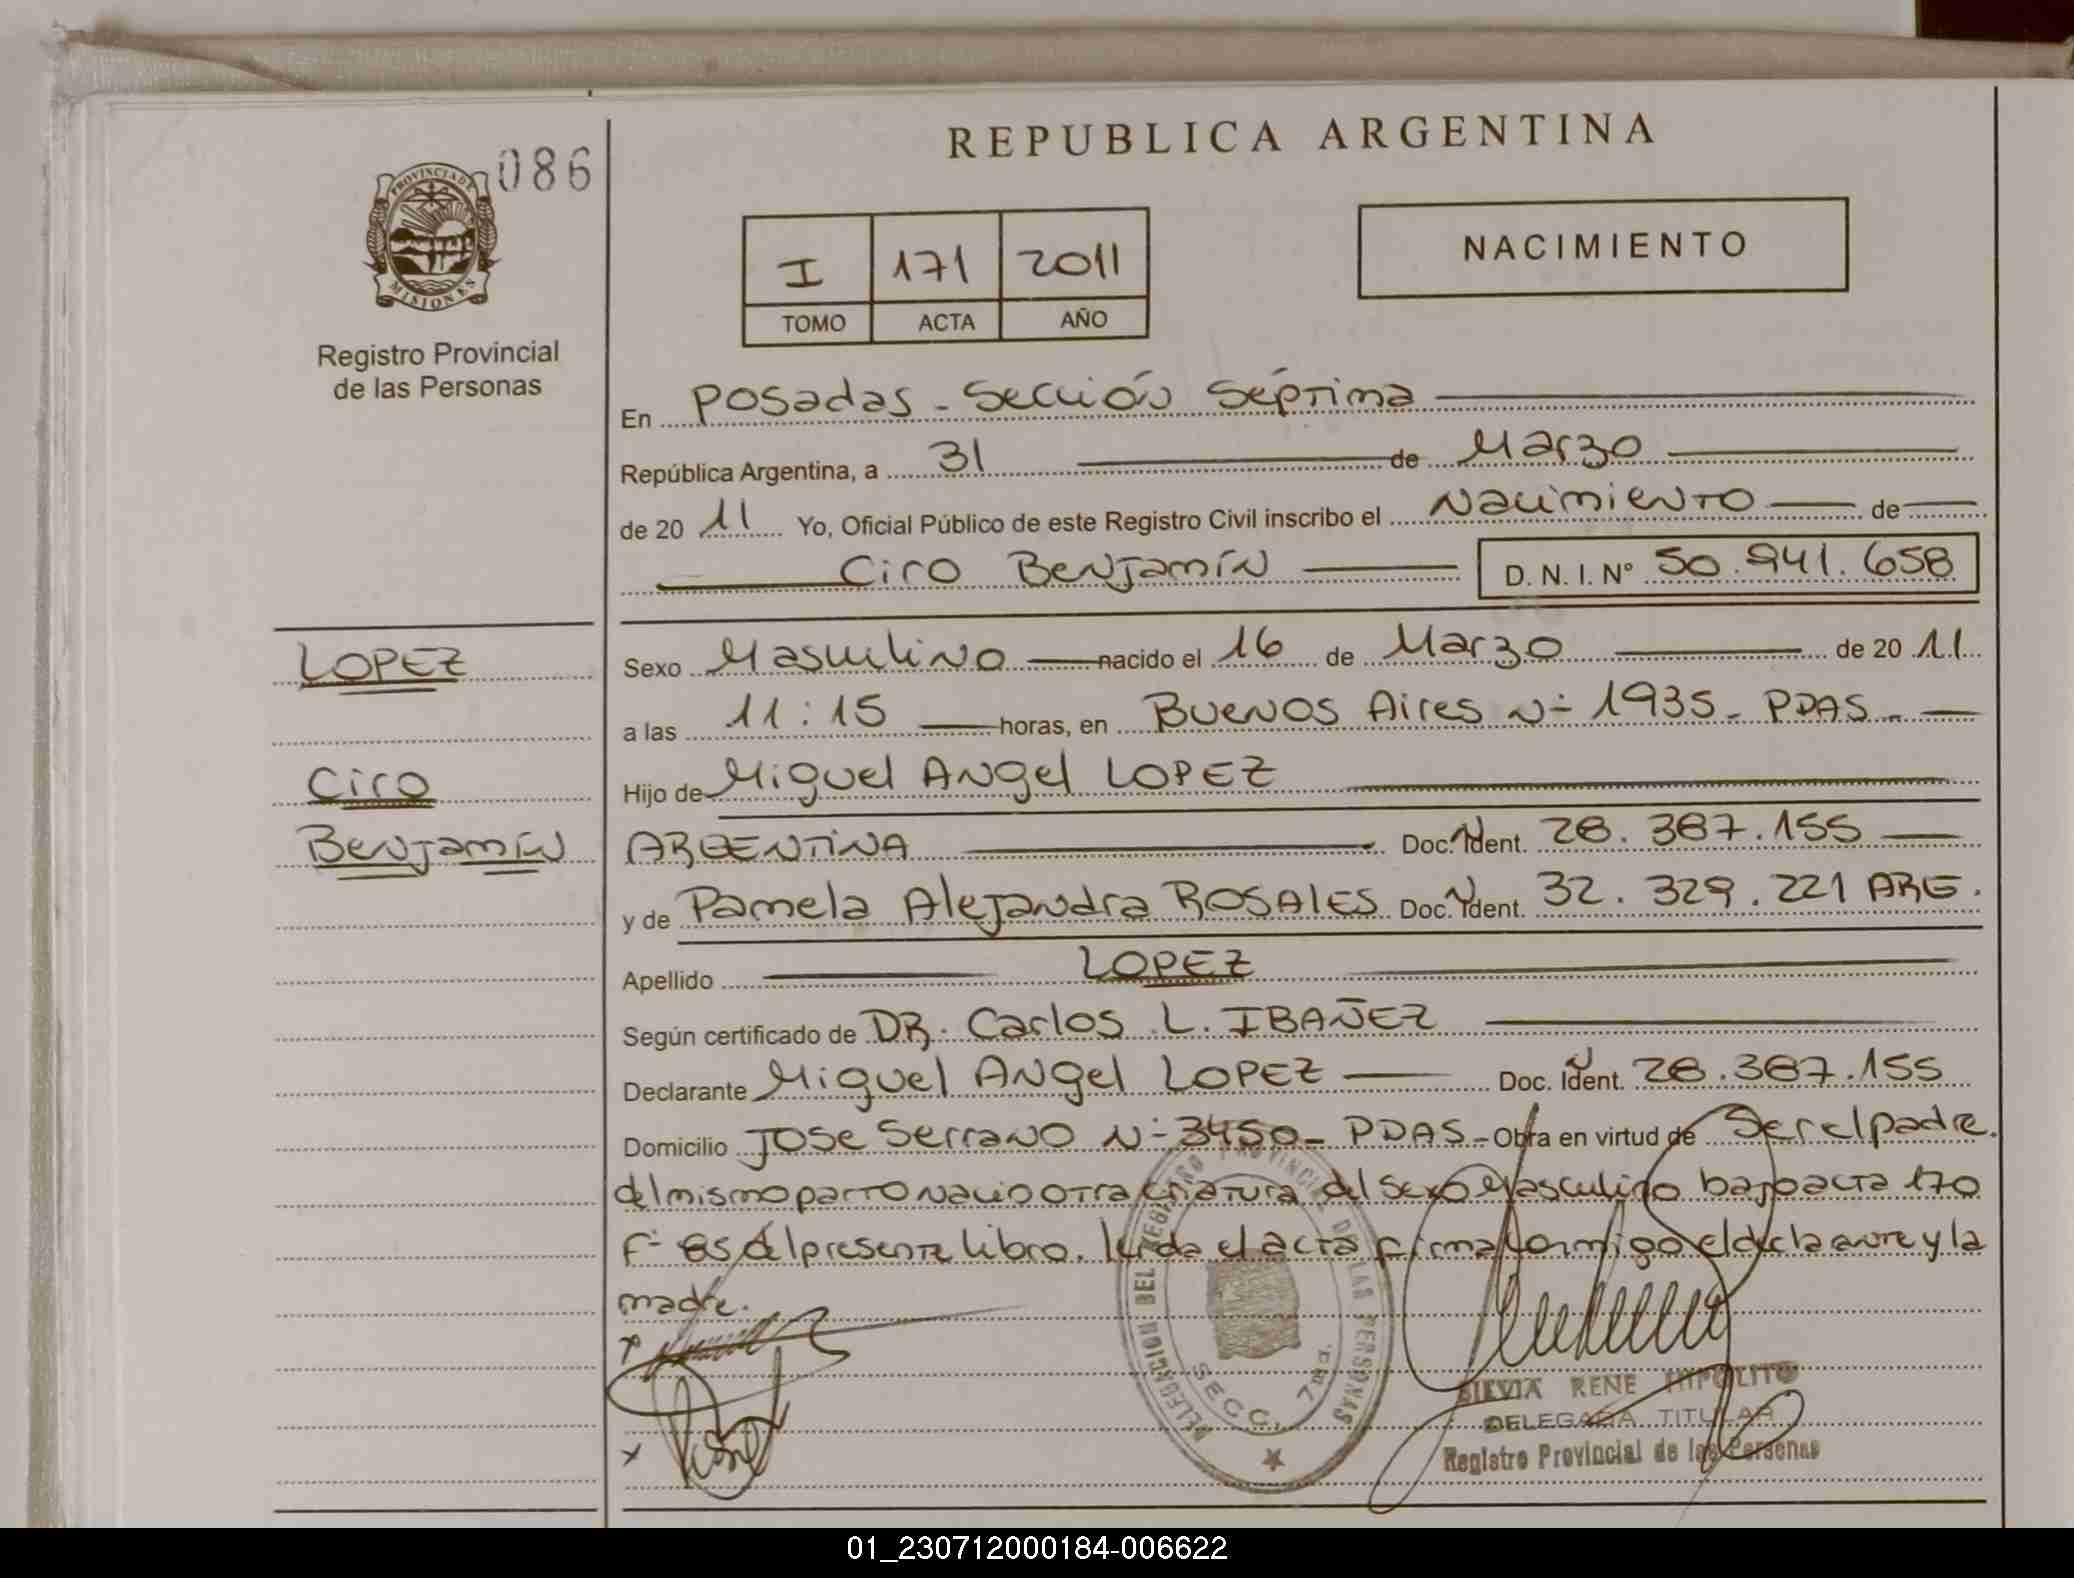 REPUBLICA ARGENTINA
086
PROVINCIA DE
MISIONES
Registro Provincial
de las Personas
I 171 2011
TOMO ACTA AÑO
NACIMIENTO
En Posadas - Sección Séptima
República Argentina, a 31 de Marzo
de 20 11 Yo, Oficial Público de este Registro Civil inscribo el Nacimiento de
Ciro Benjamín D. N. I. Nº 50.941.658
LOPEZ
Ciro
Benjamín
Sexo Masculino nacido el 16 de Marzo de 20 11
a las 11:15 horas, en Buenos Aires Nº 1935 - PDAS -
Hijo de Miguel Angel LOPEZ
ARGENTINA Doc. Ident. 28.387.155
y de Pamela Alejandra ROSALES Doc. Ident. 32.329.221 ARG.
Apellido LOPEZ
Según certificado de DR. Carlos L. IBAÑEZ
Declarante Miguel Angel LOPEZ Doc. Ident. 28.387.155
Domicilio Jose Serrano Nº 3450 - PDAS - Obra en virtud de Ser el padre.
del mismo parto nacio otra criatura del sexo Masculino bajo acta 170
Fº 85 del presente libro. leida el acta firma conmigo el declarante y la
madre.
DELEGACION DEL REGISTRO PROVINCIAL DE LAS PERSONAS
SECC. 7ma.
SILVIA RENE HIPOLITO
DELEGADA TITULAR
Registro Provincial de las Personas
01_230712000184-006622